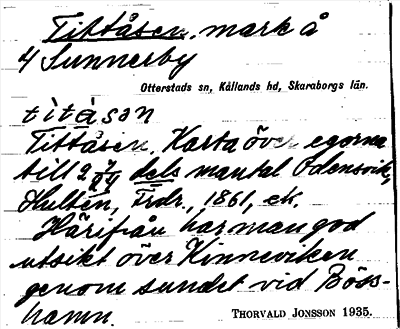 Tittåsen, mark å
4 Sunnerby
Otterstads sn, Kållands hd, Skaraborgs län.
titåsən
Tittåsen, Karta över egorna
till 2 dels mantal Odensvik,
Hultén, Frdr., 1861, ek.
Härifrån har man god
utsikt över Kinneviken
genom sundet vid Böss-
hamn.
THORVALD JONSSON 1935.